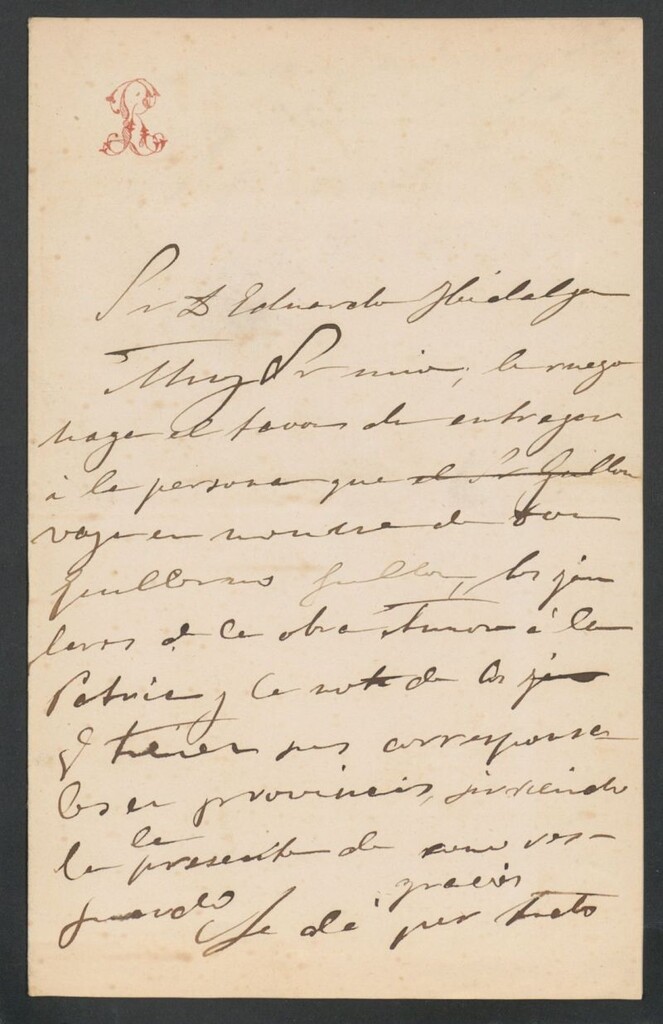 Sr D Eduardo Hidalgo
Muy Sr mio, le ruego
haga el favor de entregar
á la persona que el Sr Guillon
vaya en nombre de Don
Guillermo Guillon, los ejem
plares de la obra Amor á la
Patria y la nota de los
q tienen sus corresponsa
les en provincias, sirviendo
le la presente de como res-
guardo
gracias
Se dá por tanto